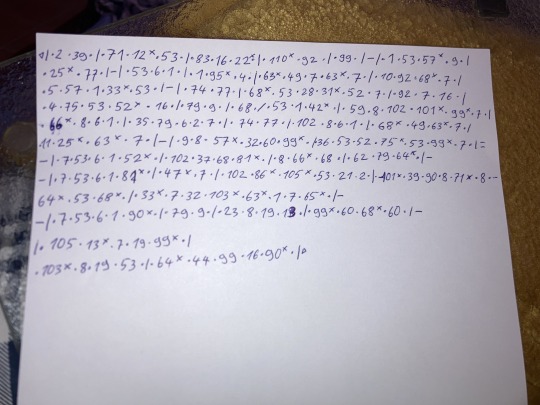 1·2·39·/·71·12ˣ·53·/·83·16·22ˣ/·110ˣ·92·/·99·/-/·1·53·57ˣ·9·/
·25ˣ·77·/-/·53·6·1·/·1·95ˣ·4·/·65ˣ·49·7·63ˣ·7·/·10·92·68ˣ·7·/
·5·57·1·33ˣ·53·/-/·74·77·/·68ˣ·53·28·31ˣ·52·7·/·92·7·16·/
·4·75·53·52ˣ·16·/·79·9·/·68·/·53·1·42ˣ·/·59·8·102·101ˣ·99ˣ·7·/
·66ˣ·8·6·1·/·35·79·6·2·7·/·74·77·/·102·8·6·1·/·68ˣ·49·63ˣ·7·/
11·25ˣ·63ˣ·7·/-/·9·8·57ˣ·32·60·99ˣ·/·36·53·52·75ˣ·53·99ˣ·7·/=
-/·7·53·6·1·52ˣ·/·102·37·68·81ˣ·/·8·66ˣ·68·/·62·79·64ˣ·/-
-/·7·53·6·1·81ˣ·/·47ˣ·7·/·102·86·105ˣ·53·21·2·/·101ˣ·39·90·8·71ˣ·8·-
64ˣ·53·68ˣ·/·33ˣ·7·32·103ˣ·63ˣ·1·7·65ˣ·/-
-/·7·53·6·1·90ˣ·/·79·9·/·23·8·19·13·/·99ˣ·60·68ˣ·60·/-
/·105·13ˣ·7·19·99ˣ·/
·103ˣ·8·19·53·/·64ˣ·44·99·16·90ˣ·/